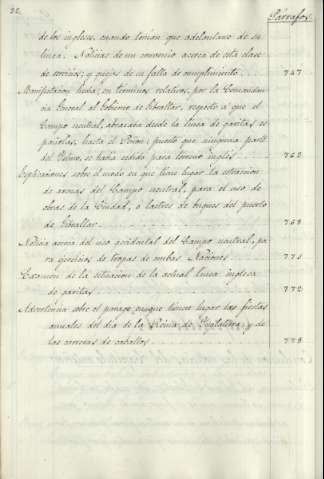 22.
Párrafos.
de los ingleses, cuando tenían que adelantarse de su
línea. Noticias de un convenio acerca de esta clase
de servicio; y quejas de su falta de cumplimiento. 747
Manifestacion hecha, en términos relativos, por la Comandan
cia General al Gobierno de Gibraltar, respecto a que el
Campo neutral, abrazaba desde la línea de garitas es
pañolas, hasta el Peñon; puesto que ninguna parte
del Istmo, se había cedido para terreno inglés. 762
Esplicaciones sobre el modo en que tiene lugar la estraccion
de arenas del Campo neutral, para el uso de
obras de la Ciudad, o lastres de buques del puerto
de Gibraltar. 768
Noticia acerca del uso accidental del Campo neutral, pa
ra ejercicios de tropas de ambas Naciones. 771
Examen de la situacion de la actual línea inglesa
de garitas. 772
Advertencia sobre el parage en que tienen lugar las fiestas
anuales del dia de la Reina de Inglaterra, y de
las carreras de caballos. 778